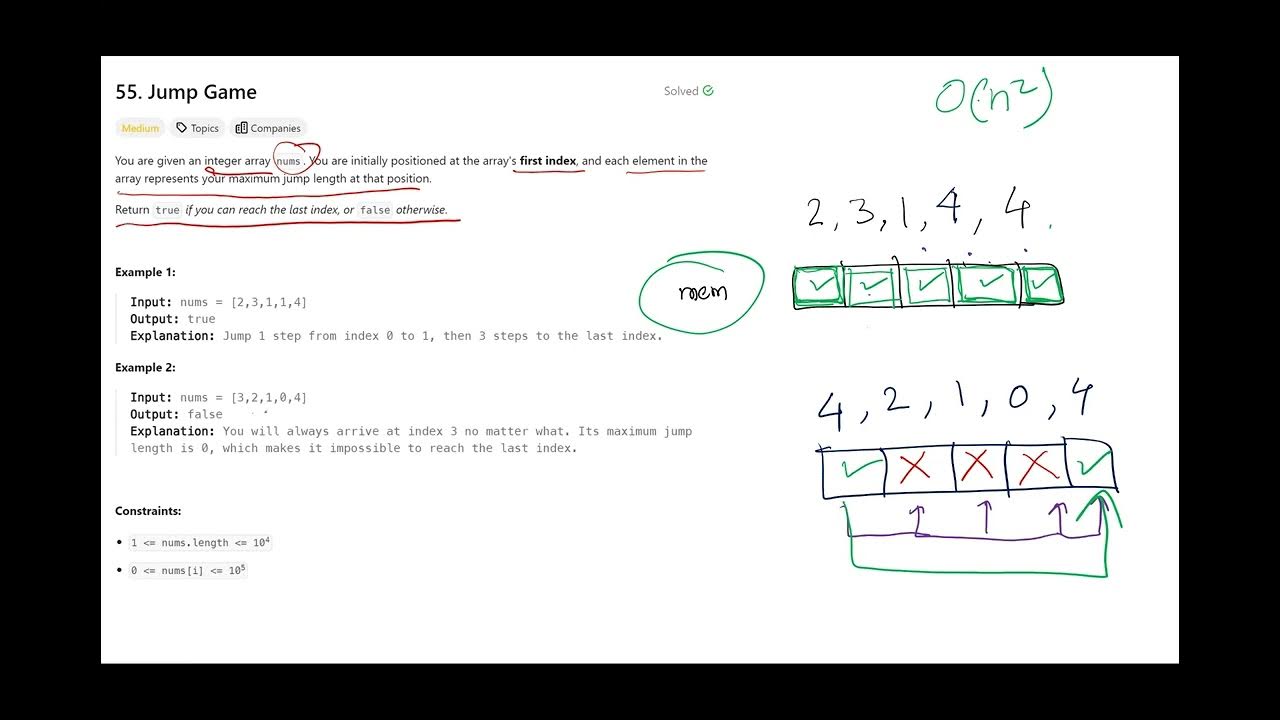 55. Jump Game
Solved
Medium
Topics
Companies
You are given an integer array nums. You are initially positioned at the array's first index, and each element in the
array represents your maximum jump length at that position.
Return true if you can reach the last index, or false otherwise.
Example 1:
Input: nums = [2,3,1,1,4]
Output: true
Explanation: Jump 1 step from index 0 to 1, then 3 steps to the last index.
Example 2:
Input: nums = [3,2,1,0,4]
Output: false
Explanation: You will always arrive at index 3 no matter what. Its maximum jump
length is 0, which makes it impossible to reach the last index.
Constraints:
1 <= nums.length <= 10⁴
0 <= nums[i] <= 10⁵
O(n²)
2, 3, 1, 4, 4
mem
4, 2, 1, 0, 4